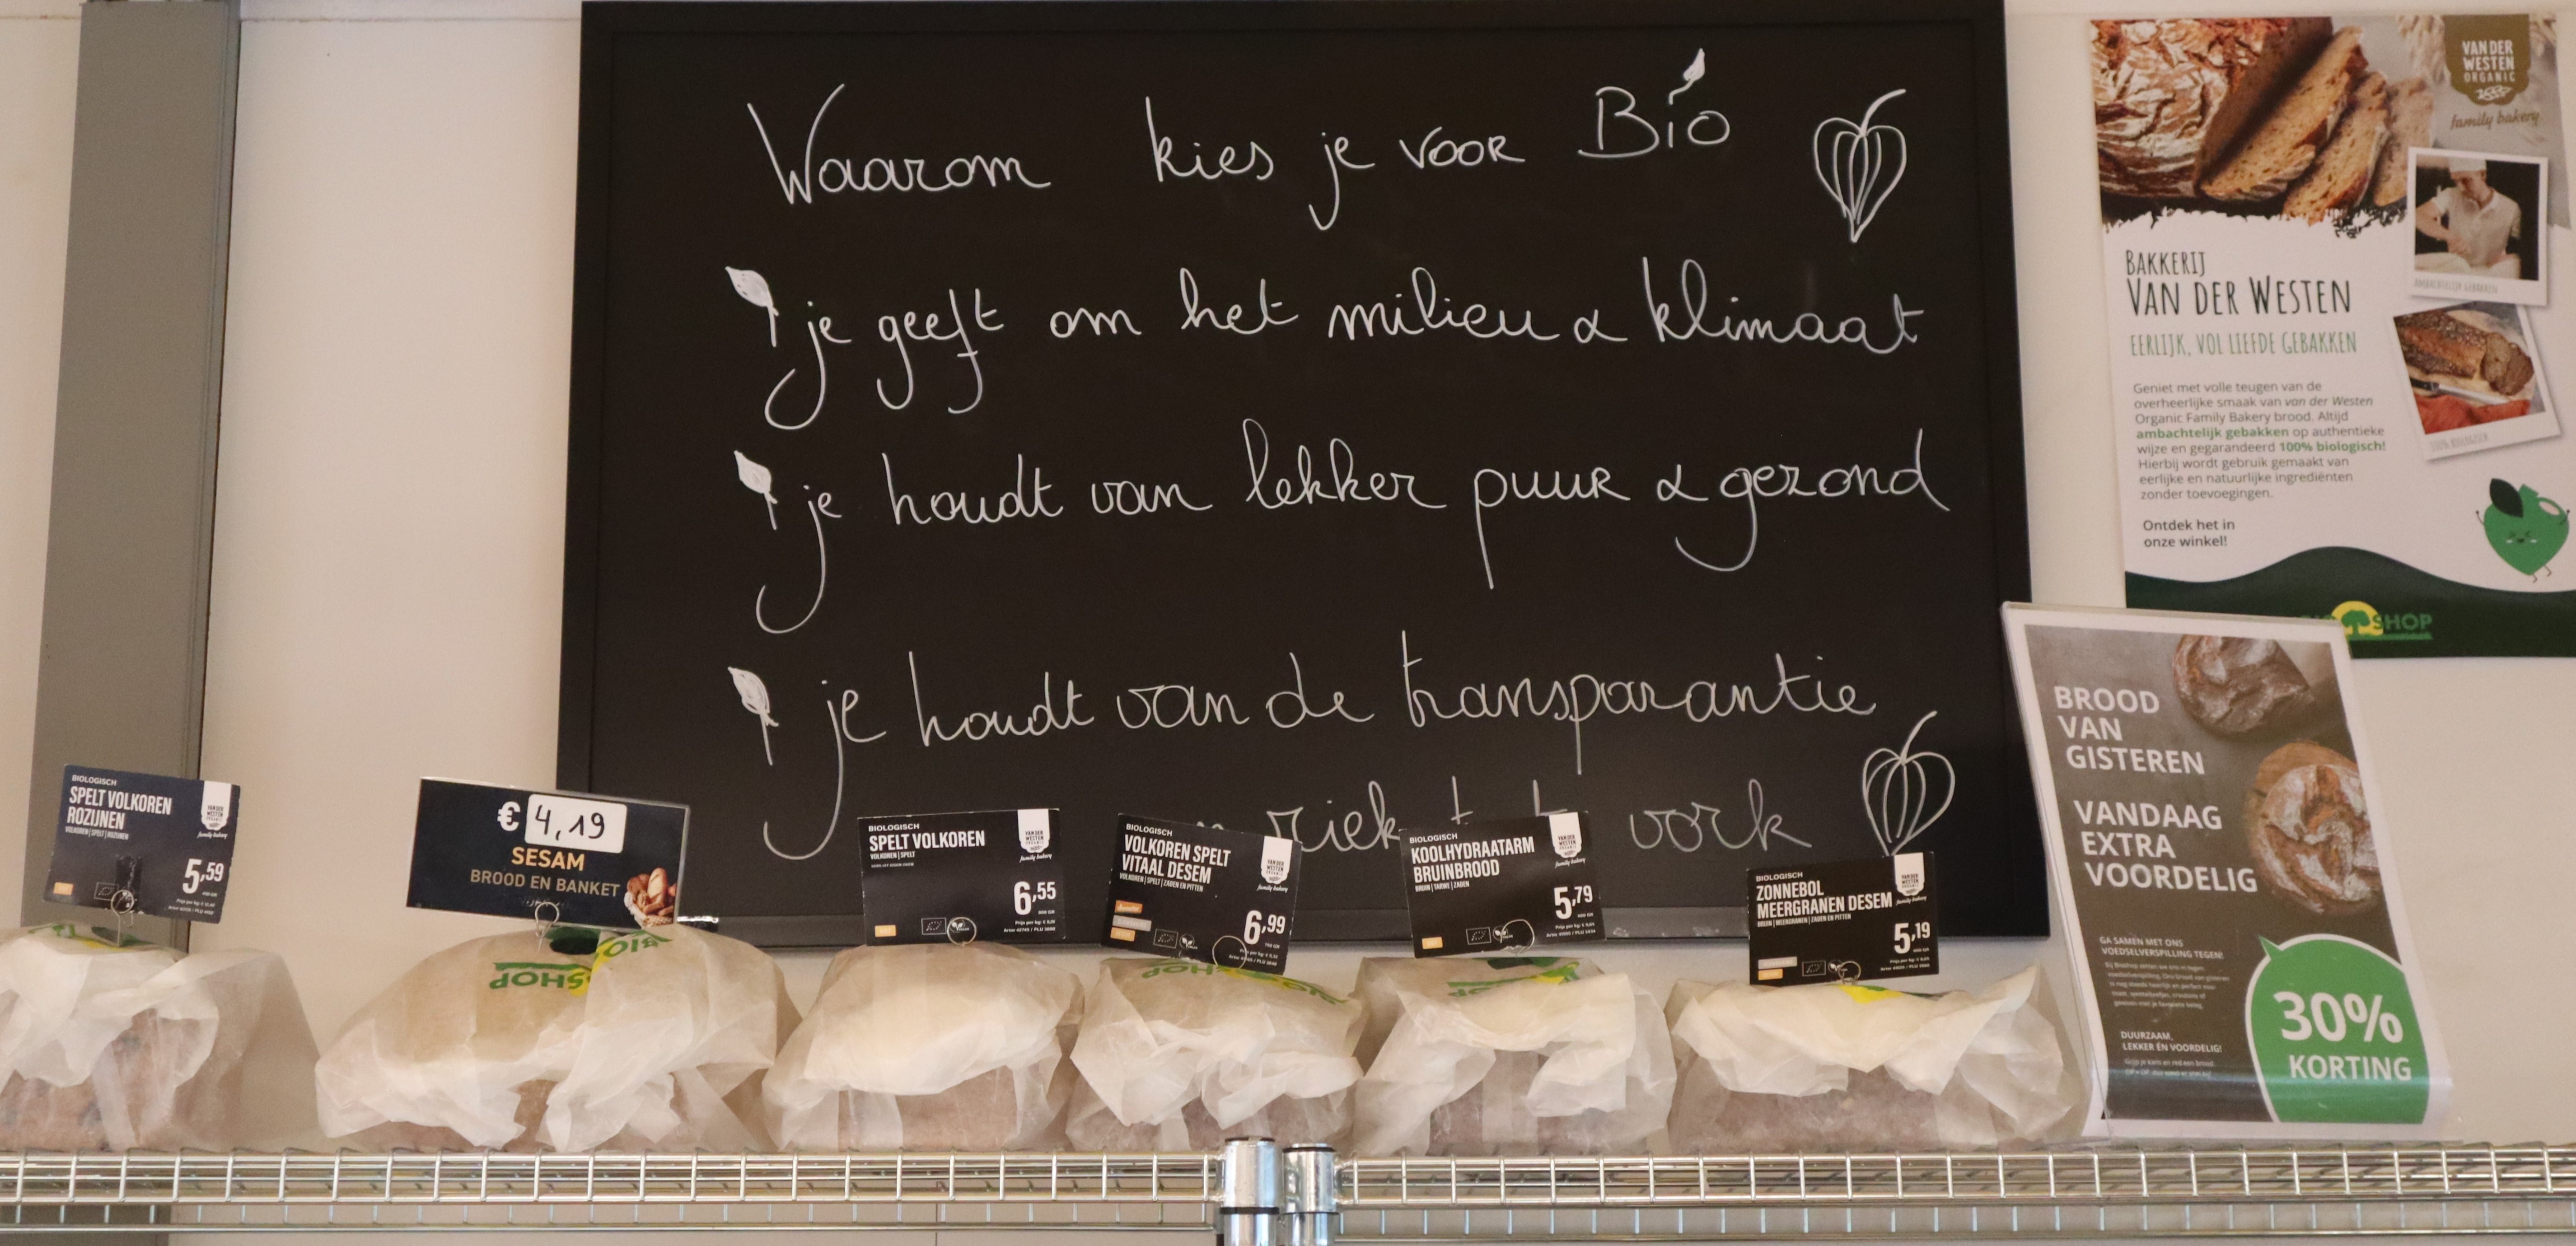 Waarom kies je voor Bio
je geeft om het milieu & klimaat
je houdt van lekker puur & gezond
je houdt van de transparantie
riek vork
VAN DER
WESTEN
ORGANIC
family bakery
AMBACHTELIJK GEBAKKEN
BAKKERIJ
VAN DER WESTEN
EERLIJK, VOL LIEFDE GEBAKKEN
Geniet met volle teugen van de
overheerlijke smaak van van der Westen
Organic Family Bakery brood. Altijd
ambachtelijk gebakken op authentieke
wijze en gegarandeerd 100% biologisch!
Hierbij wordt gebruik gemaakt van
eerlijke en natuurlijke ingrediënten
zonder toevoegingen.
Ontdek het in
onze winkel!
100% BIOLOGISCH
SHOP
BROOD
VAN
GISTEREN
VANDAAG
EXTRA
VOORDELIG
GA SAMEN MET ONS
VOEDSELVERSPILLING TEGEN!
DUURZAAM,
LEKKER ÉN VOORDELIG!
30%
KORTING
BIOLOGISCH
SPELT VOLKOREN
ROZIJNEN
VOLKOREN | SPELT | ROZIJNEN
5,59
€ 4,19
SESAM
BROOD EN BANKET
BIOLOGISCH
SPELT VOLKOREN
VOLKOREN | SPELT
6,55
BIOLOGISCH
VOLKOREN SPELT
VITAAL DESEM
VOLKOREN | SPELT | ZADEN EN PITTEN
6,99
BIOLOGISCH
KOOLHYDRAATARM
BRUINBROOD
BRUIN | TARWE | ZADEN
5,79
BIOLOGISCH
ZONNEBOL
MEERGRANEN DESEM
BRUIN | MEERGRANEN | ZADEN EN PITTEN
5,19
BIO
SHOP